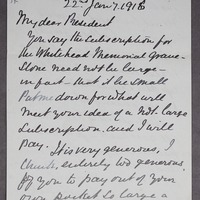 22nd Jany. 1916
My dear President
You say the Subscription for
the Whitehead Memorial Grave-
Stone need not be large -
in fact - that it be small
Put me down for what will
meet your idea of a not large
Subscription and I will
pay. It is very generous, I
think, entirely too generous,
for you to pay out of your
own pocket so large a